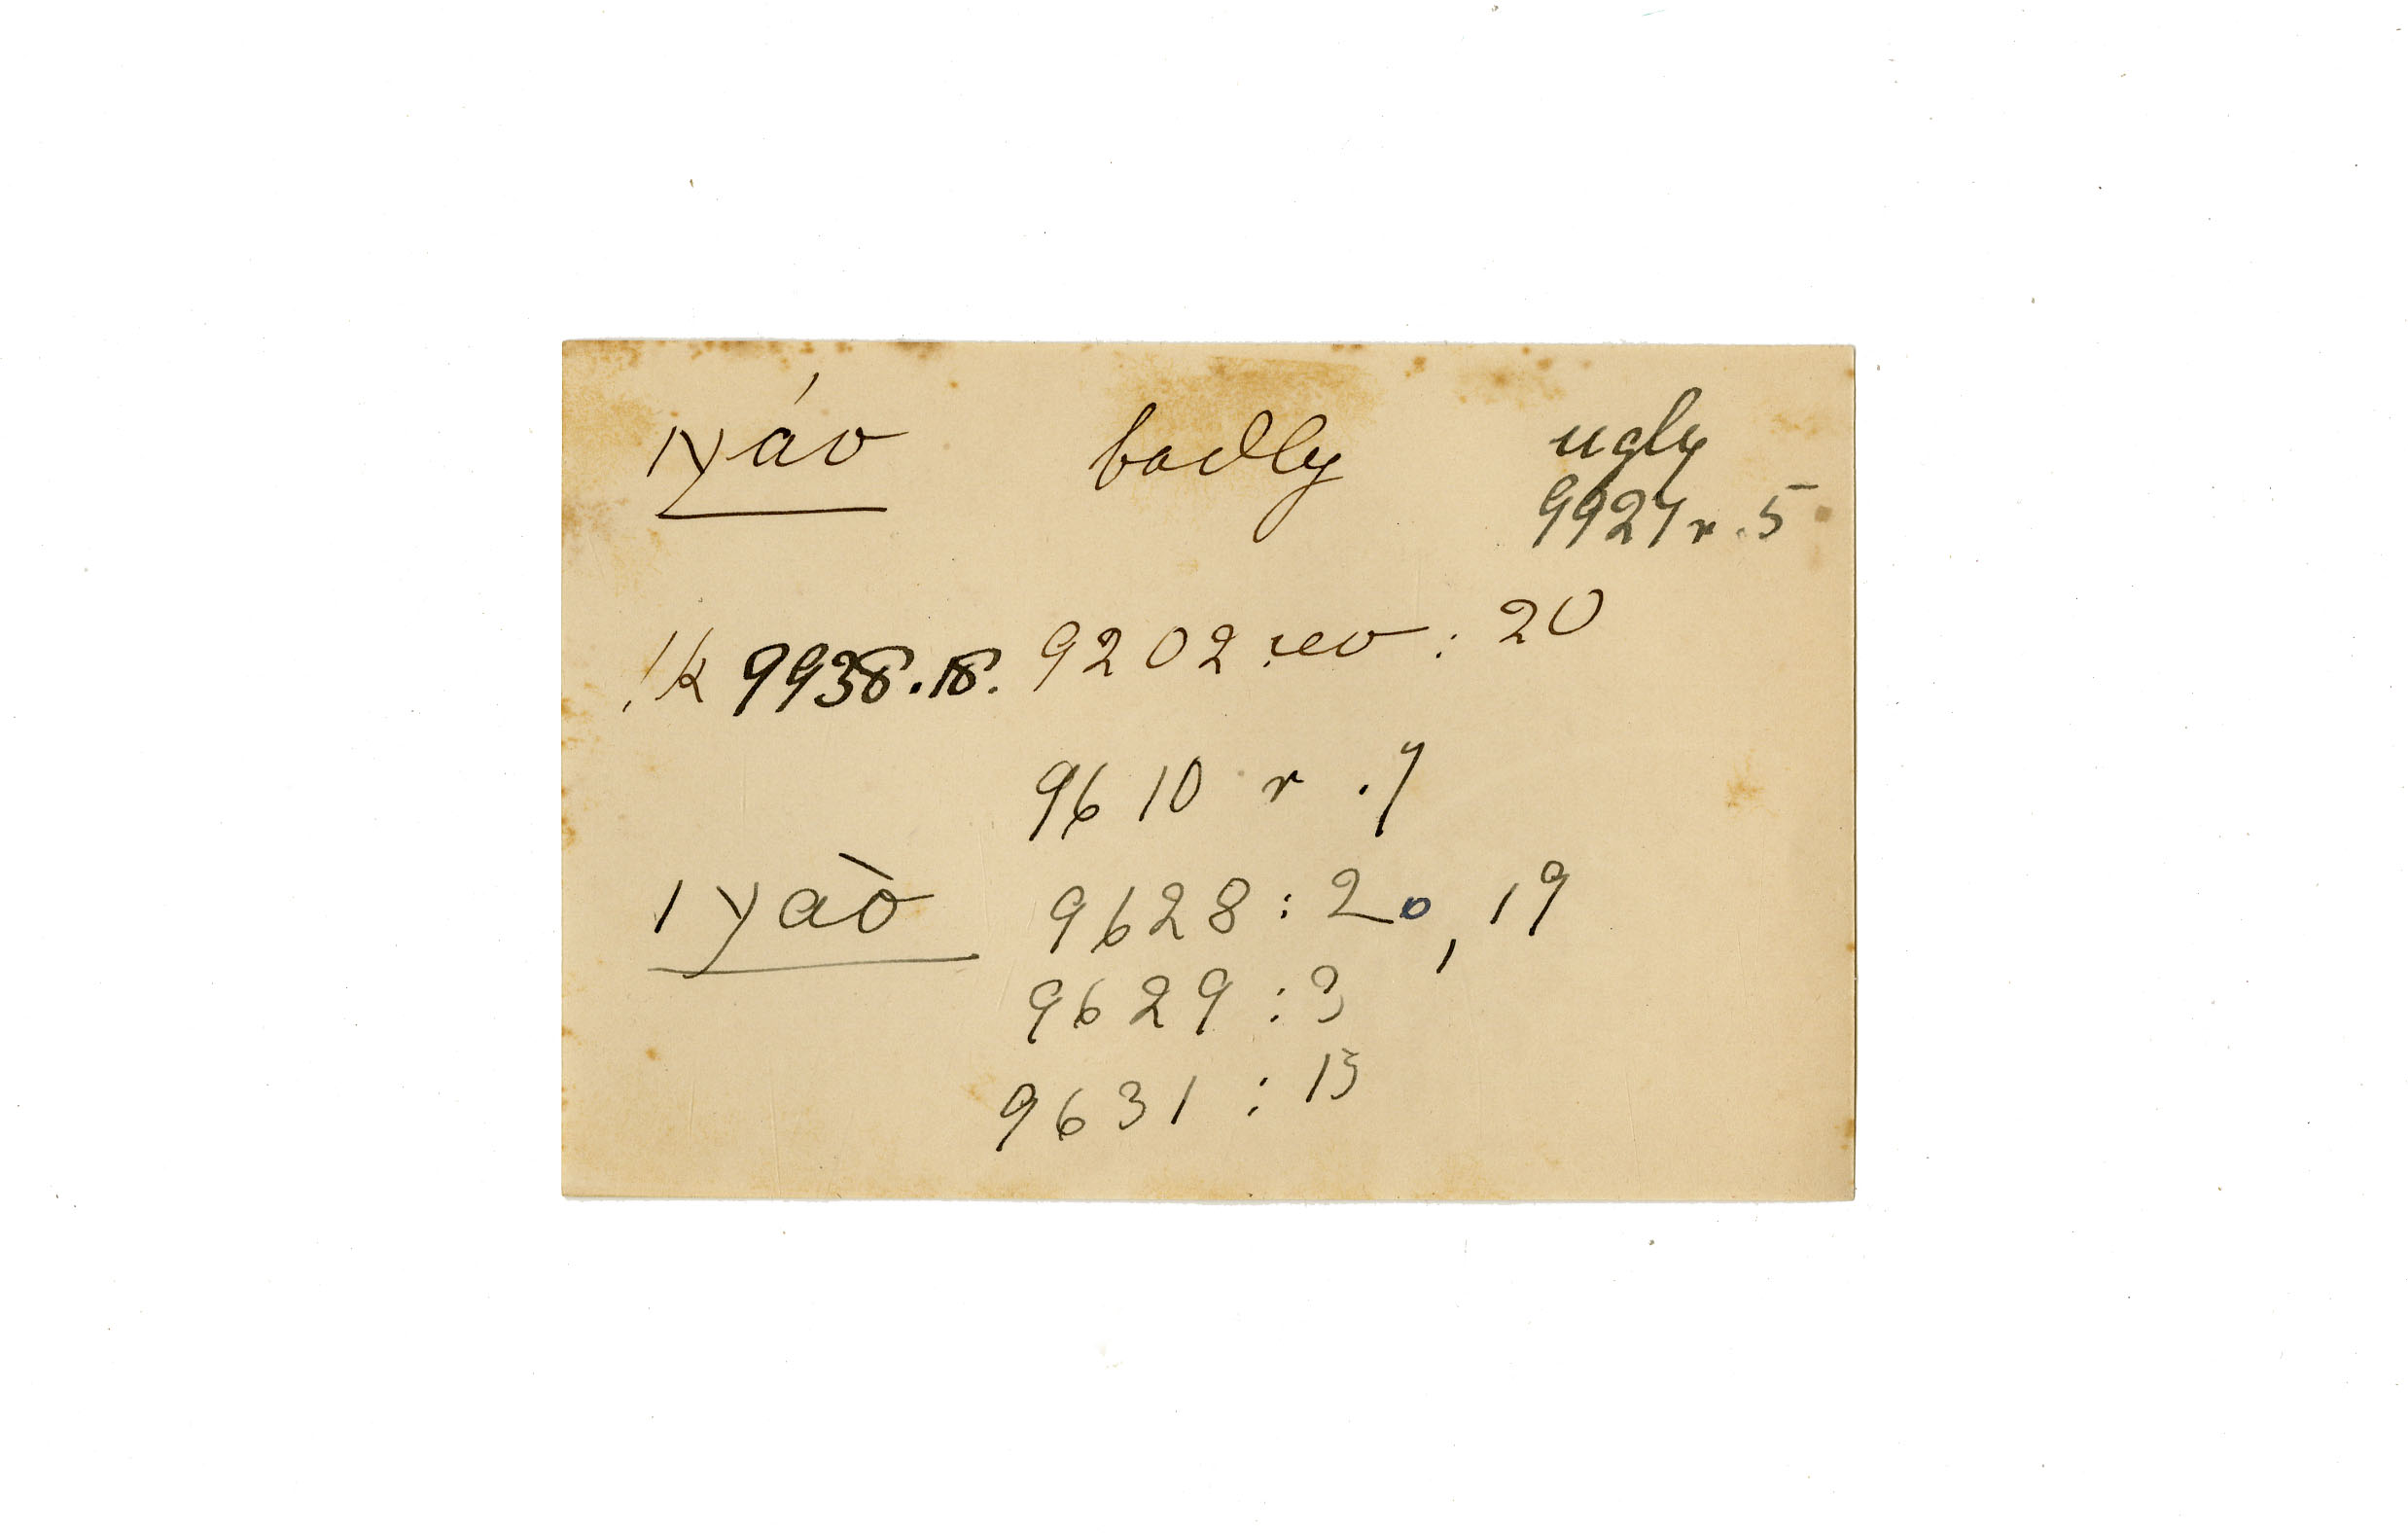 ıyáo badly ugly
9927 r. 5
!k 9938.18. 9202 rev: 20
9610 r. 7
ıyaò 9628: 20, 19
9629: 3
9631: 13